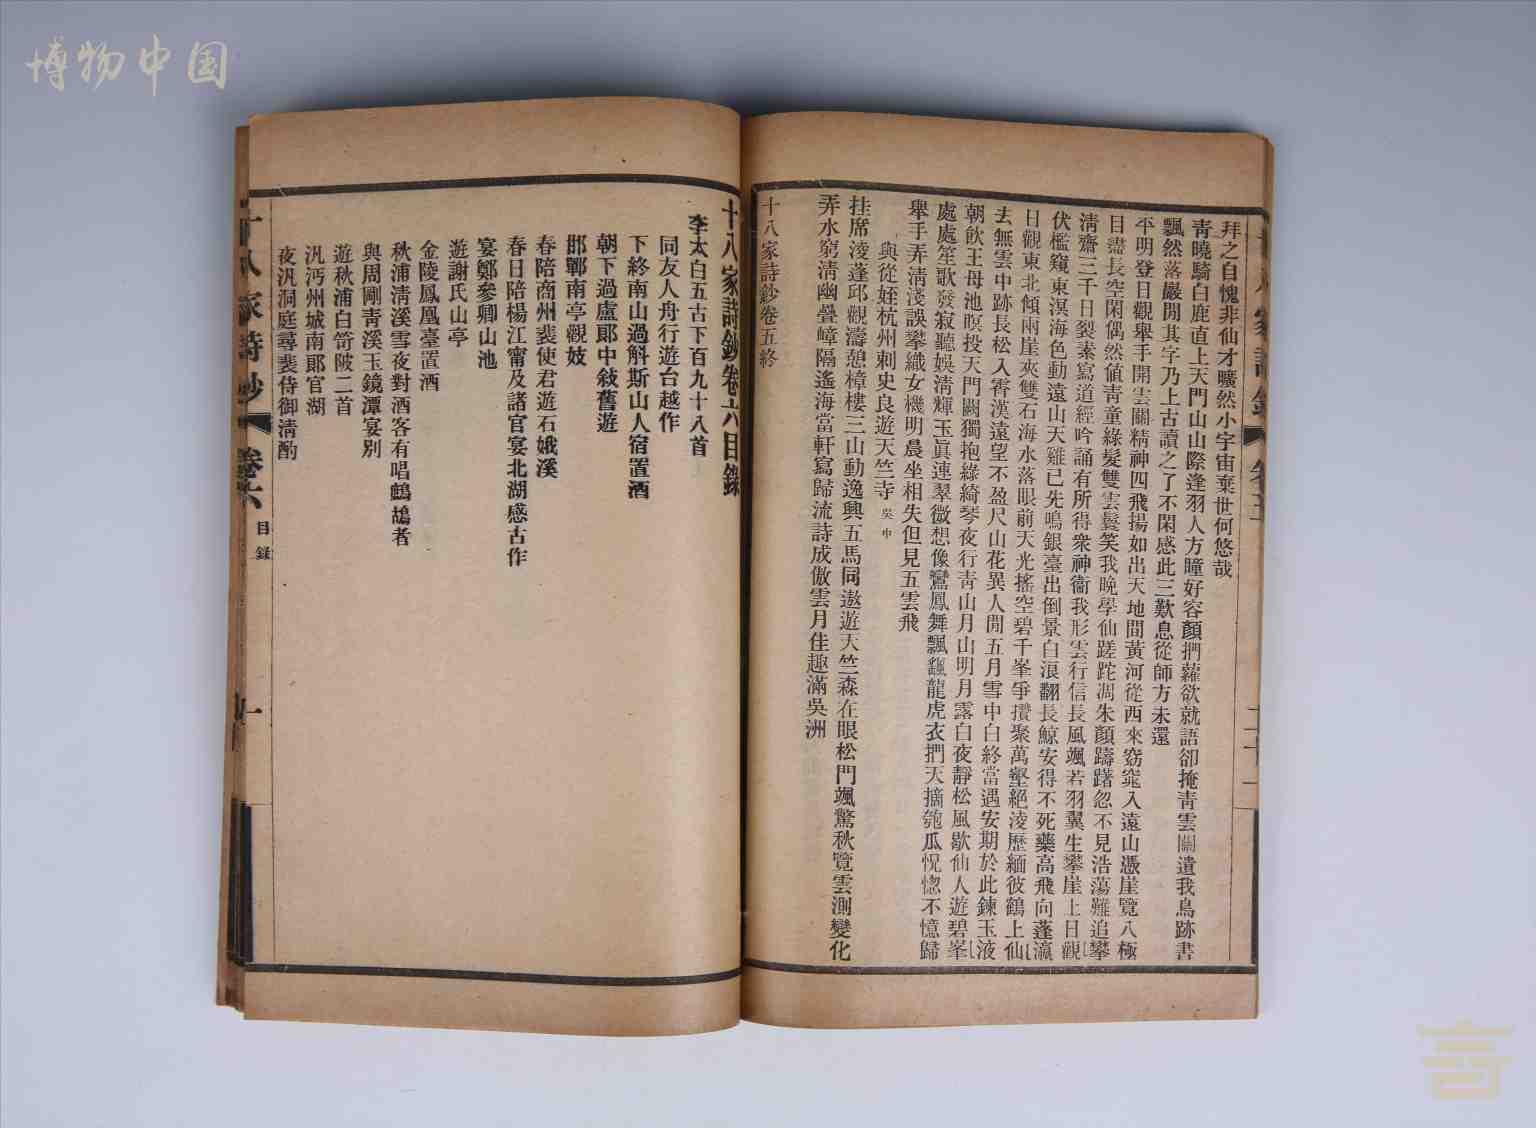 十八家詩鈔 卷五
拜之自愧非仙才曠然小宇宙棄世何悠哉
青曉騎白鹿直上天門山山際逢羽人方瞳好容顏捫蘿欲就語卻掩青雲關遺我鳥跡書
飄然落巖閒其字乃上古讀之了不閑感此三歎息從師方未還
平明登日觀舉手開雲關精神四飛揚如出天地間黃河從西來窈窕入遠山憑崖覽八極
目盡長空閑偶然值青童綠髮雙雲鬟笑我晚學仙蹉跎凋朱顏躊躇忽不見浩蕩難追攀
清齋三千日裂素寫道經吟誦有所得眾神衞我形雲行信長風颯若羽翼生攀崖上日觀
伏檻窺東溟海色動遠山天雞已先鳴銀臺出倒景白浪翻長鯨安得不死藥高飛向蓬瀛
日觀東北傾兩崖夾雙石海水落眼前天光搖空碧千峯爭攢聚萬壑絕淩歷緬彼鶴上仙
去無雲中跡長松入霄漢遠望不盈尺山花異人閒五月雪中白終當遇安期於此鍊玉液
朝飲王母池暝投天門闕獨抱綠綺琴夜行青山月山明月露白夜靜松風歇仙人遊碧峯
處處笙歌發寂聽娛清輝玉眞連翠微想像鸞鳳舞飄颻龍虎衣捫天摘匏瓜怳惚不憶歸
舉手弄清淺誤攀織女機明晨坐相失但見五雲飛
與從姪杭州刺史良遊天竺寺 吳中
挂席淩蓬邱觀濤憩樟樓三山動逸興五馬同遨遊天竺森在眼松門颯驚秋覽雲測變化
弄水窮清幽疊嶂隔遙海當軒寫歸流詩成傲雲月佳趣滿吳洲
十八家詩鈔卷五終
十八家詩鈔卷六目錄
李太白五古下百九十八首
同友人舟行遊台越作
下終南山過斛斯山人宿置酒
朝下過盧郎中敍舊遊
邯鄲南亭觀妓
春陪商州裴使君遊石娥溪
春日陪楊江甯及諸官宴北湖感古作
宴鄭參卿山池
遊謝氏山亭
金陵鳳凰臺置酒
秋浦清溪雪夜對酒客有唱鷓鴣者
與周剛青溪玉鏡潭宴別
遊秋浦白笴陂二首
汎沔州城南郎官湖
夜汎洞庭尋裴侍御清酌
十八家詩鈔 卷六 目錄 一
博物中国